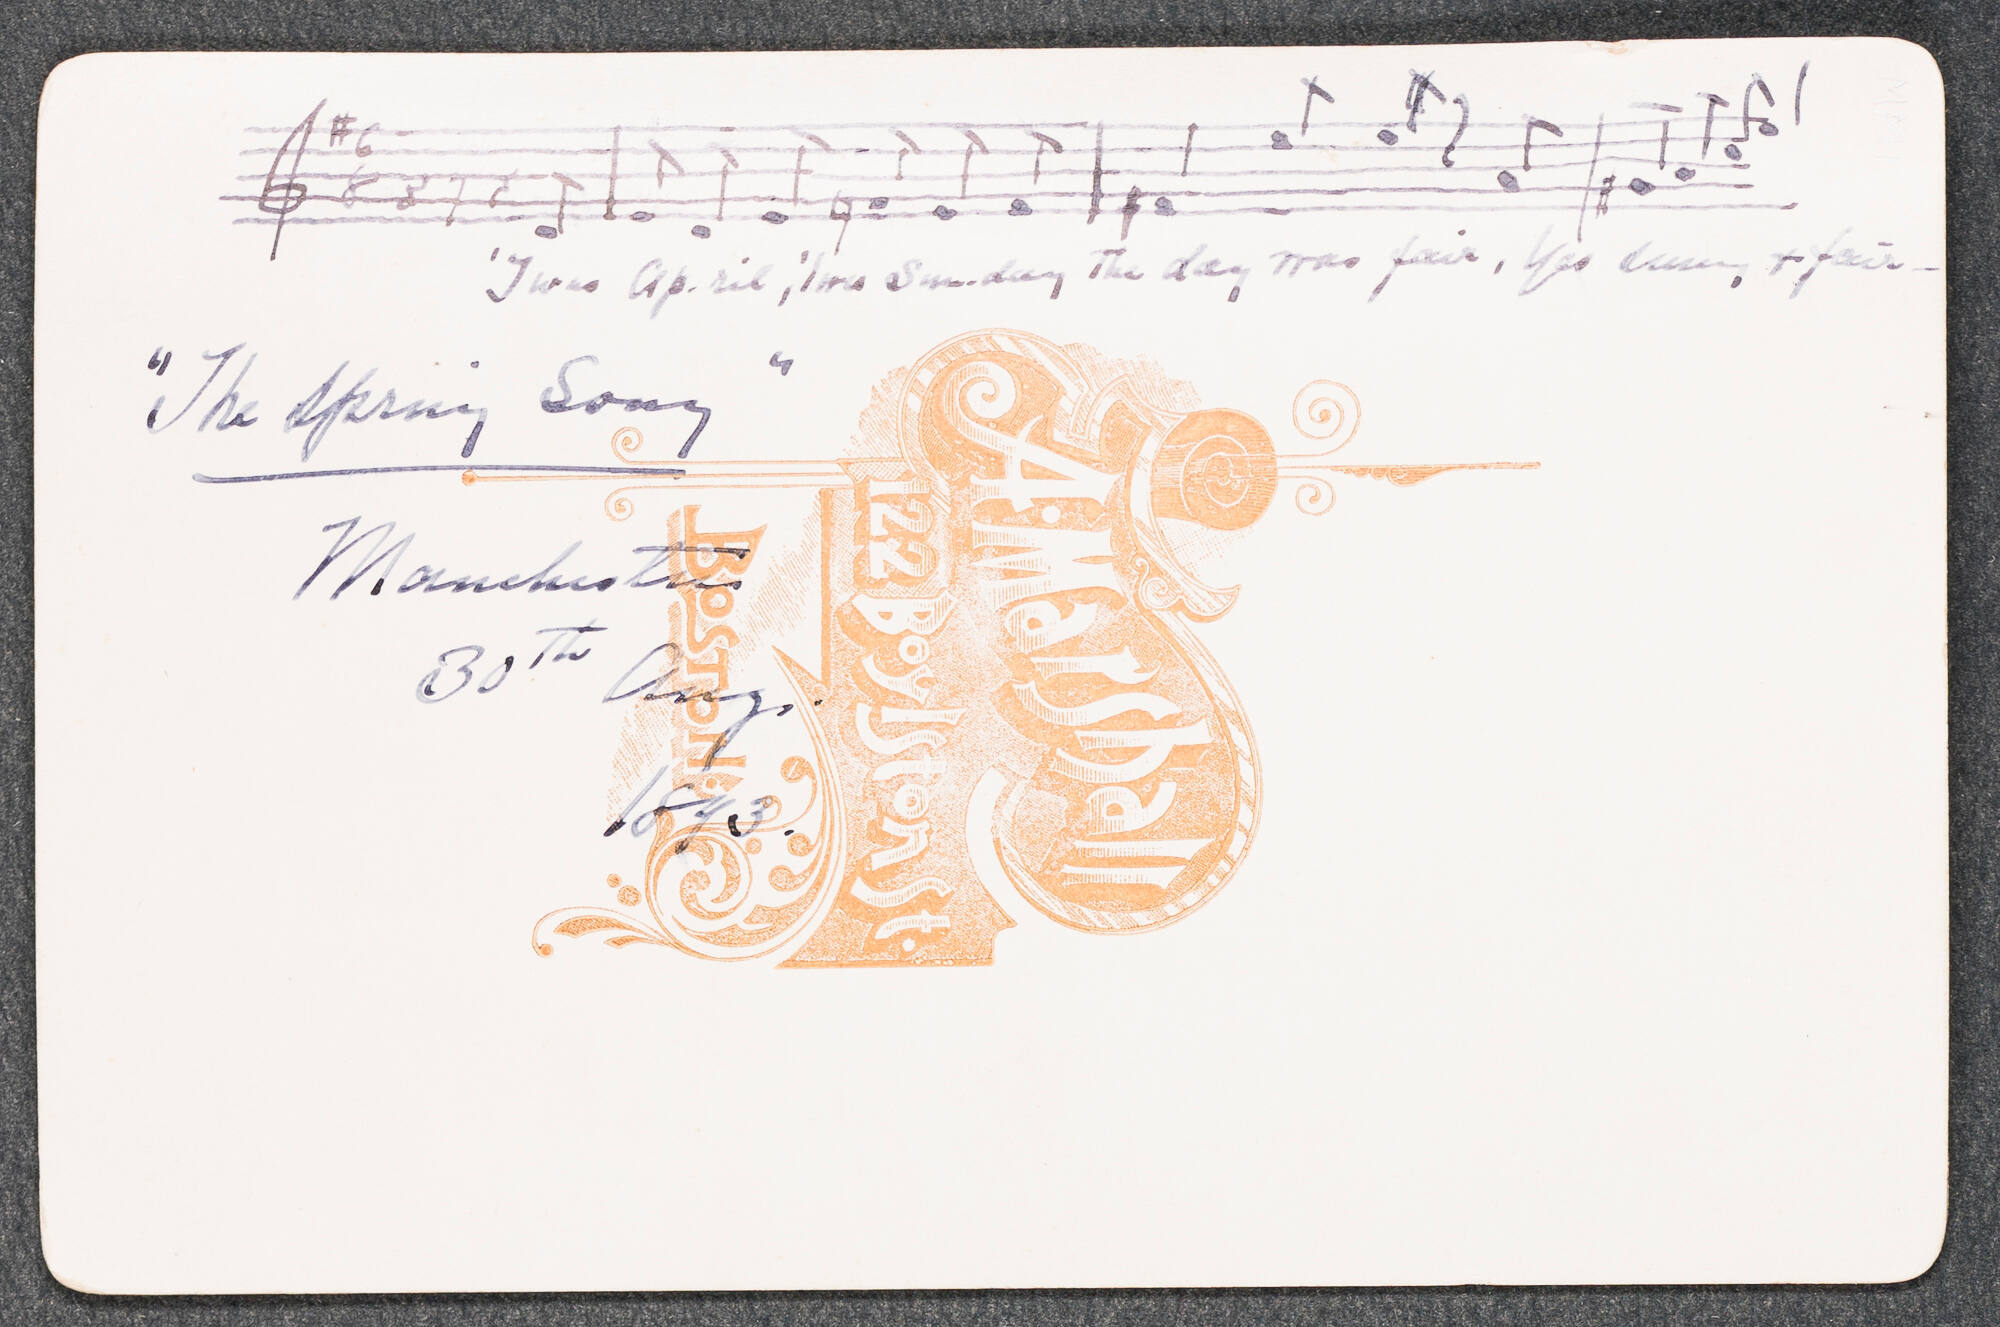 'Twas April, 'twas Sunday the day was fair, Yes sunny & fair –
"The Spring Song"
Manchester
30th Aug.
1893.
A. Marshall
122 Boylston St.
Boston.